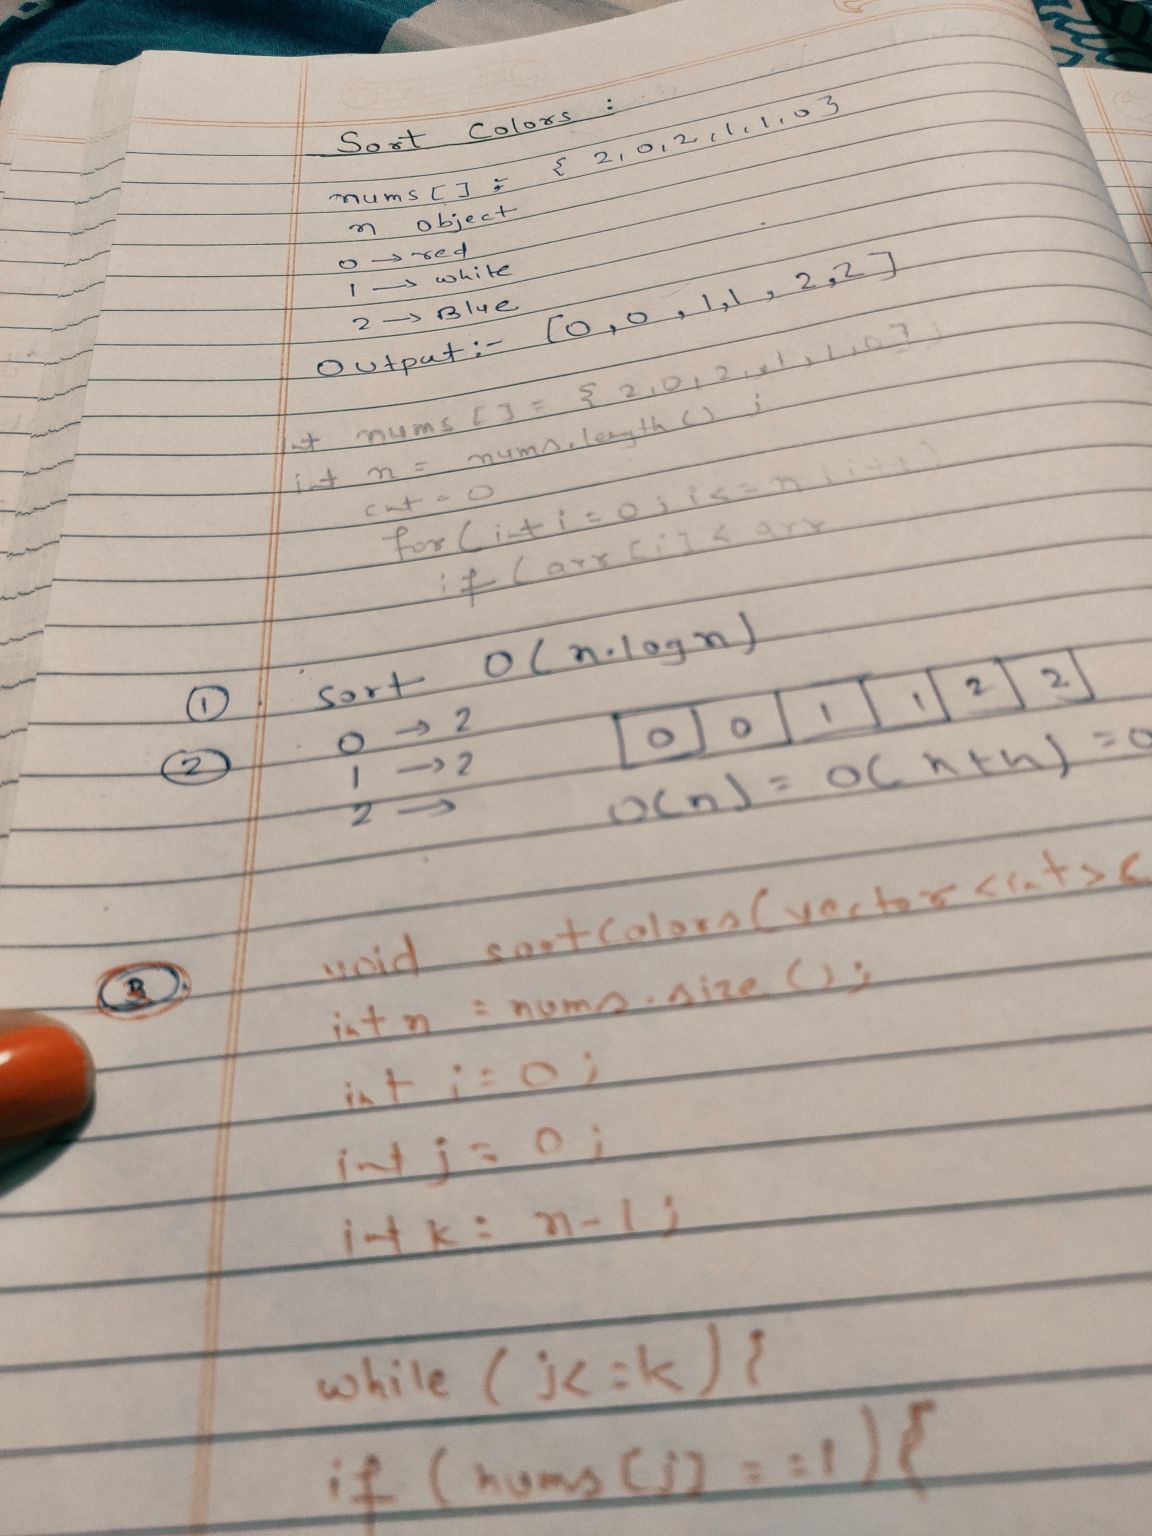 Sort Colors :
nums[] = { 2,0,2,1,1,0}
n object
0 → red
1 → white
2 → Blue
Output :- [0,0,1,1,2,2]
int nums[] = { 2,0,2,1,1,0};
int n = nums.length();
cnt = 0
for(int i=0; i<=n; i++)
if(arr[i] < arr
① sort O(n.logn)
② 0 → 2
1 → 2
2 →
0 0 1 1 2 2
O(n) = O(n+n) = O
3. void sortColors(vector<int>&
int n = nums.size();
int i=0;
int j=0;
int k= n-1;
while (j<=k){
if (nums[j]==1){